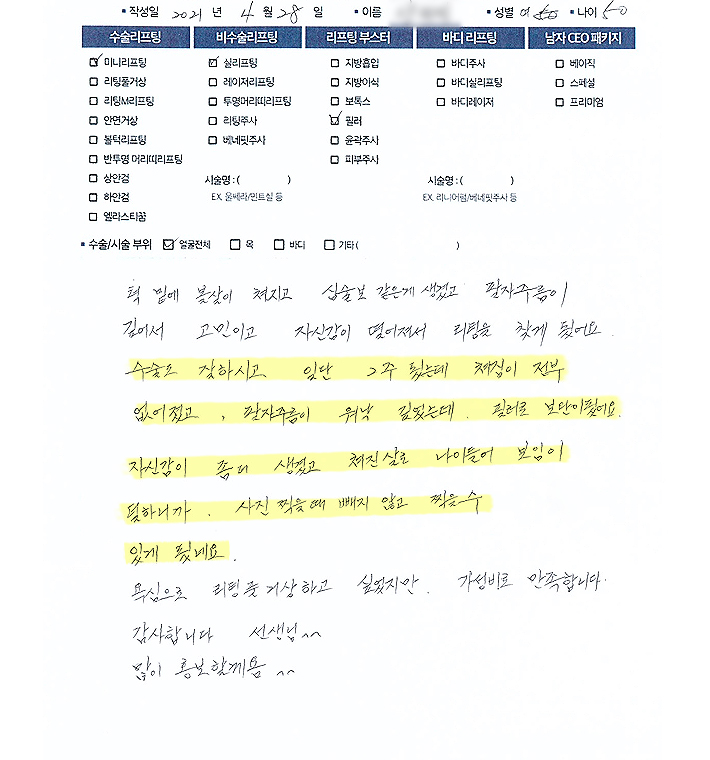 ▪ 작성일 2021 년 4 월 28 일 ▪ 이름 ▪ 성별 여 ▪ 나이 50
수술리프팅 비수술리프팅 리프팅 부스터 바디 리프팅 남자 CEO 패키지
미니리프팅 실리프팅 지방흡입 바디주사 베이직
리팅풀거상 레이저리프팅 지방이식 바디실리프팅 스페셜
리팅M리프팅 투명머리띠리프팅 보톡스 바디레이저 프리미엄
안면거상 리팅주사 필러
볼턱리프팅 베네핏주사 윤곽주사
반투명 머리띠리프팅 피부주사
상안검 시술명 : ( ) 시술명 : ( )
하안검 EX. 울쎄라/민트실 등 EX. 리니어펌/베네핏주사 등
엘리스티꿈
▪ 수술/시술 부위 얼굴전체 목 바디 기타 ( )
턱 밑에 볼살이 쳐지고 심술보 같은게 생겼고 팔자주름이
깊어서 고민이고 자신감이 떨어져서 리팅을 찾게 됬어요.
수술도 잘하시고 일단 2주 됬는데 쳐짐이 전부
없어졌고, 팔자주름이 워낙 깊었는데. 필러로 보완이됬어요.
자신감이 좀더 생겼고 쳐진살로 나이들어 보임이
덜하니까. 사진 찍을때 빼지 않고 찍을수
있게 됬네요.
욕심으로 리팅풀거상하고 싶었지만. 가성비로 만족합니다.
감사합니다 선생님^^
많이 홍보할께욤 ^^